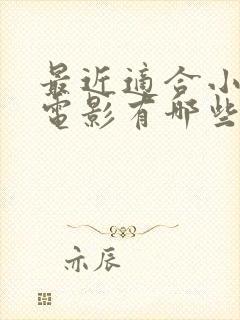 最近適合小
電影有哪些
亦辰